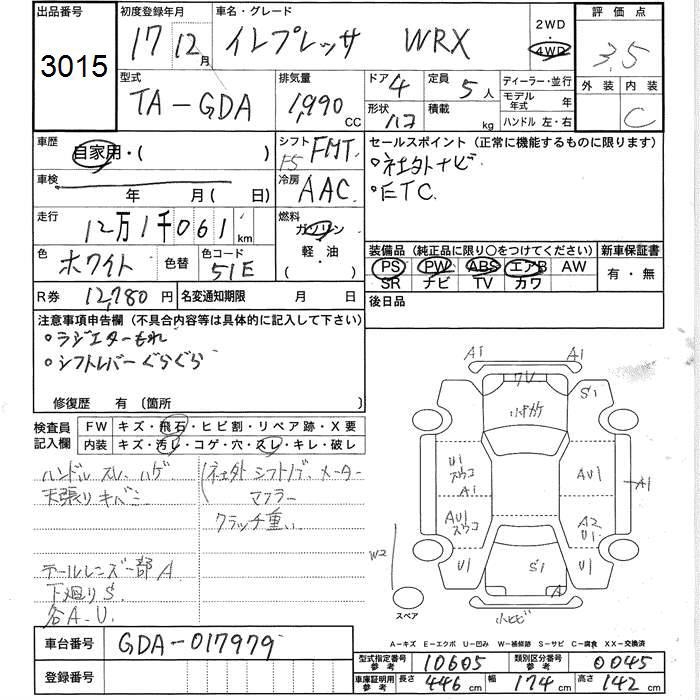 出品番号 初度登録年月 車名・グレード 2WD ・ 4WD 評価点
3015 17 12月 インプレッサ WRX 3.5
型式 排気量 ドア 4 定員 5人 ディーラー・並行 外装 内装
TA-GDA 1,990 CC 形状 積載 kg モデル年式 年 C
ハンドル 左・右
車歴 自家用・( ) シフト F5 FMT セールスポイント(正常に機能するものに限ります)
車検 年 月(日) 冷房 AAC ・社外ナビ
・ETC
走行 12万1千061km 燃料 ガソリン
軽・油
( ・ )
色 ホワイト 色替 色コード 51E 装備品(純正品に限り○をつけてください) 新車保証書
PS PW ABS エアB AW 有・無
SR ナビ TV カワ
R券 12,780円 名変通知期限 月 日 後日品
注意事項申告欄(不具合内容等は具体的に記入して下さい)
・ラジエターもれ
・シフトレバーぐらぐら
修復歴 有(箇所
検査員記入欄 FW キズ・飛石・ヒビ割・リペア跡・X要
内装 キズ・汚レ・コゲ・穴・スレ・キレ・破レ
ハンドルスレ、ハゲ 社外シフトノブ、メーター
天張りキバミ マフラー
クラッチ重い
テールレンズ一部A
下廻りS.
各A.U.
A1 A1
W S1
小キカケ
U1 スウコ AU1 A1
A1
AU1 スウコ A2 U1
U1 S1 U1
W2 A
スペア 小ヒビ
A-キズ E-エクボ U-凹み W-補修跡 S-サビ C-腐食 XX-交換済
車台番号 GDA-017979
登録番号
型式指定番号 参考 10605 類別区分番号 参考 0045
車庫証明用 参考 長さ 446cm 幅 174cm 高さ 142cm